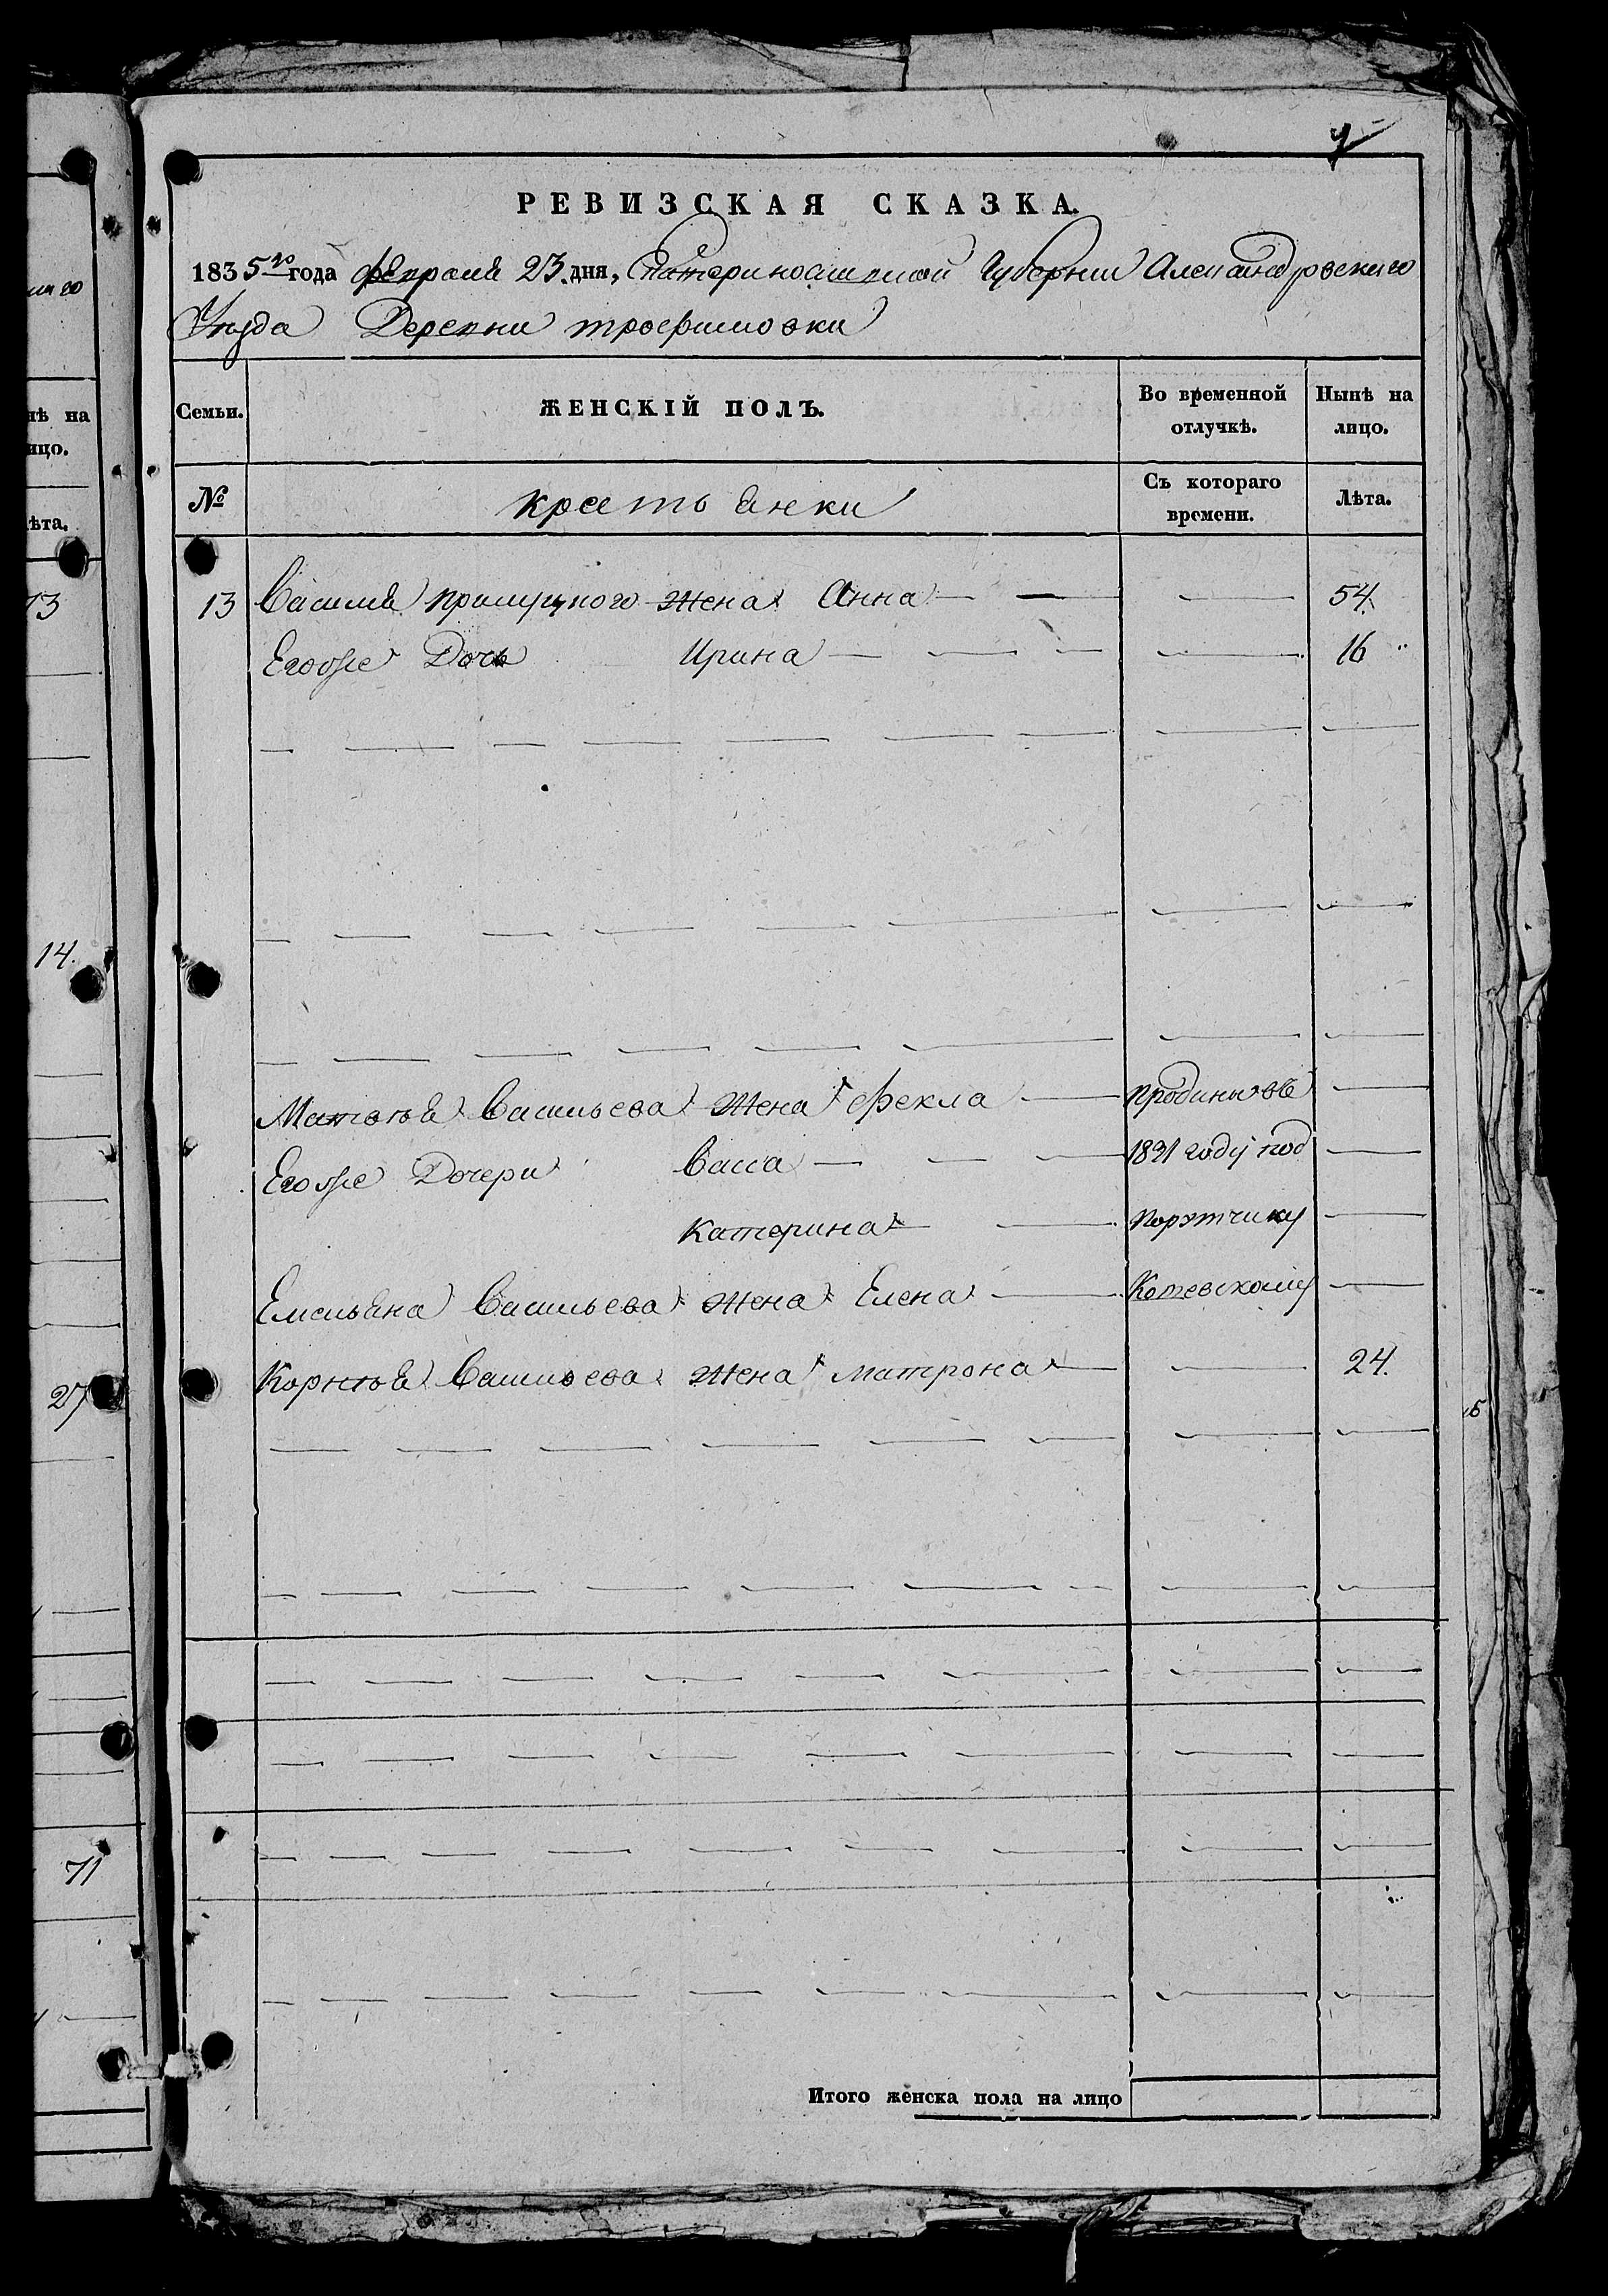 7
РЕВИЗСКАЯ СКАЗКА.
1835го года февраля 23 дня, Екатеринославской Губернии Александровского
Уезда Деревни трофимовки
Семьи.
ЖЕНСКІЙ ПОЛЪ.
Во временной отлучкѣ.
Нынѣ на лицо.
№
крестьянки
Съ котораго времени.
Лѣта.
13 Василия жена Анна 54.
Егоже Дочь Ирина 16
Матвѣя Васильева жена фекла проданы въ
Егоже Дочери Васса 1831 году под
Катерина порутчику
Емельяна Васильева жена Елена Котевскому
Корнѣя Васильева жена матрона 24.
Итого женска пола на лицо
нѣ на
ицо.
ѣта.
13
14.
27
71